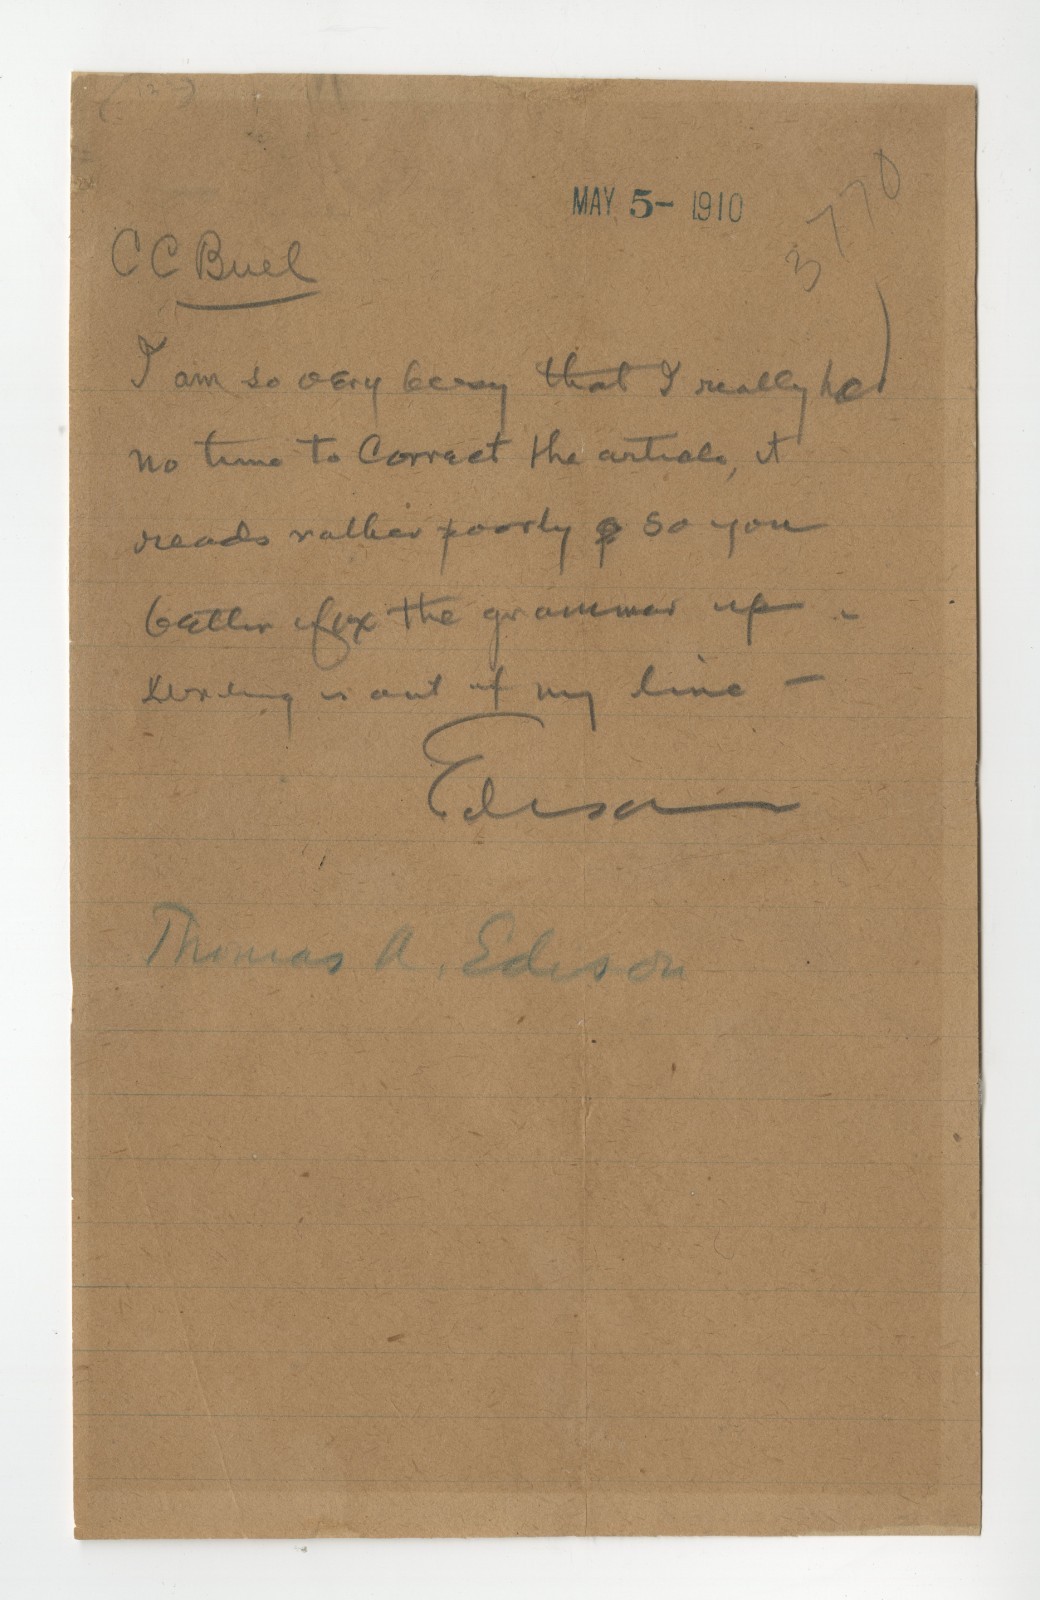 MAY 5- 1910
3770
C C Buel
I am so very busy that I really
no time to Correct the article, it
reads rather poorly so you
better fix the grammar up -
is out of my line -
Edison
Thomas A. Edison